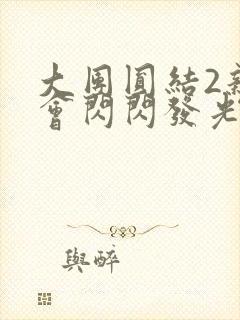 大團圓結2新
會閃閃發光
與醉